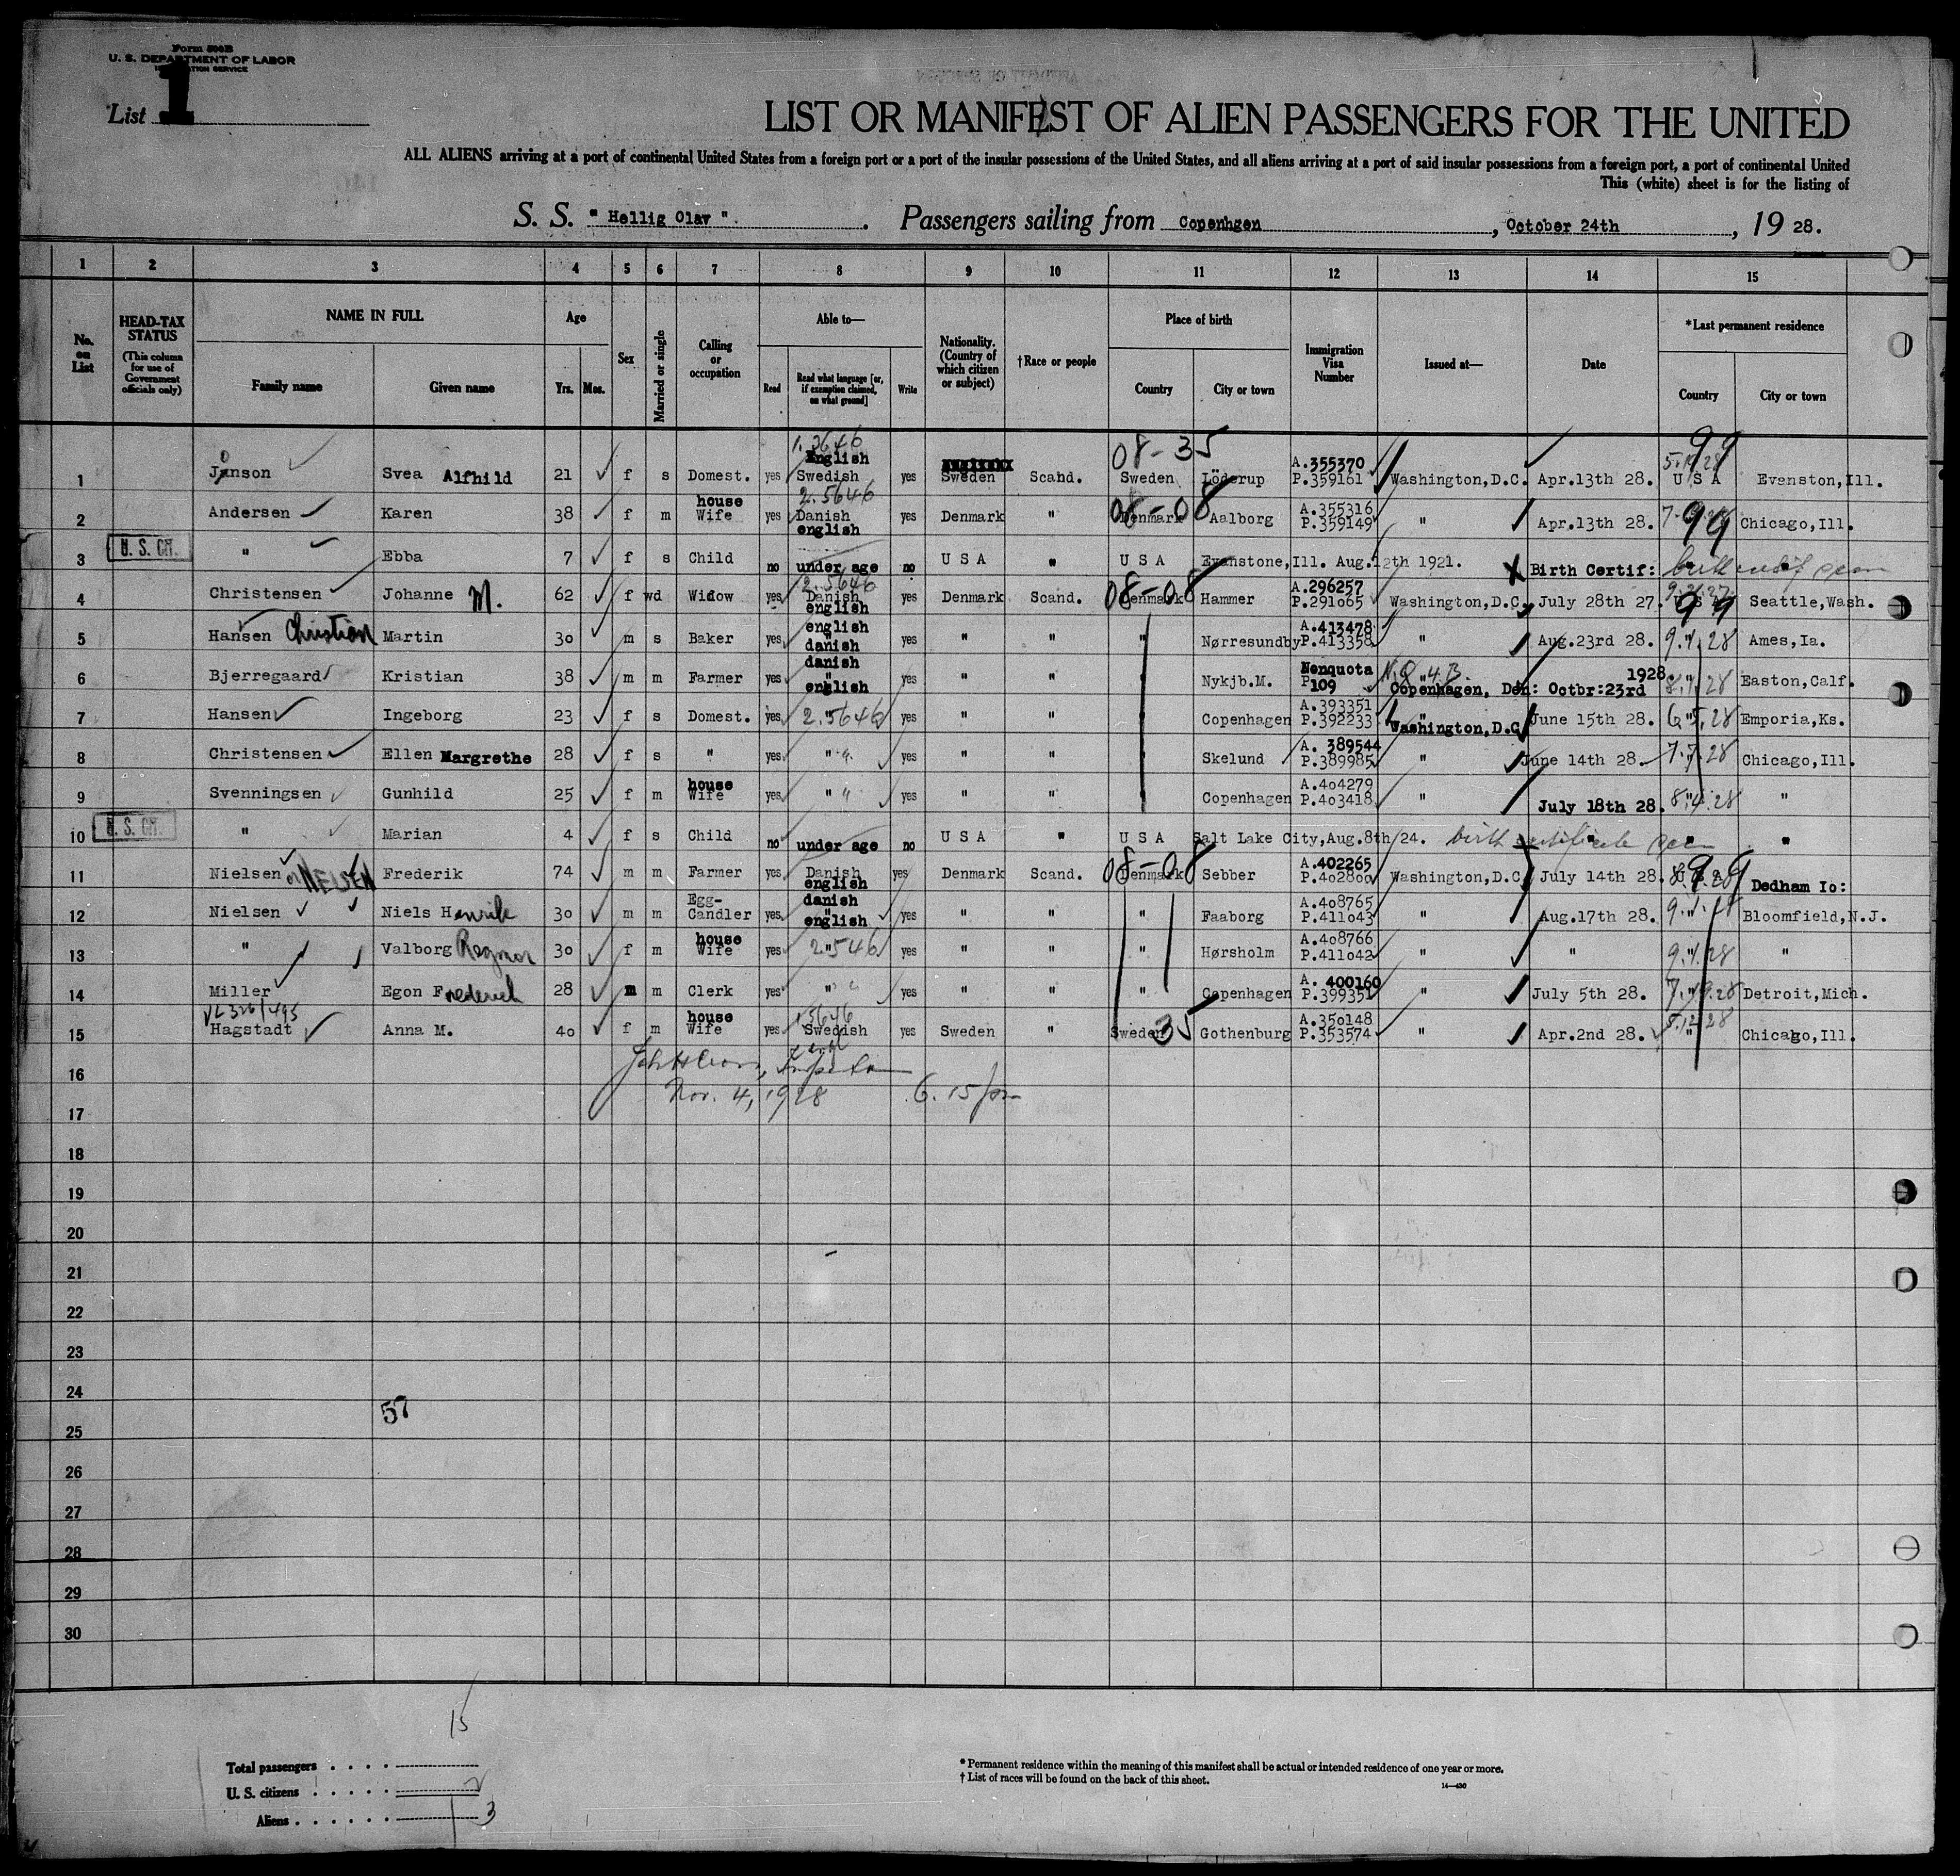 Form 500B
U. S. DEPARTMENT OF LABOR
List 1
LIST OR MANIFEST OF ALIEN PASSENGERS FOR THE UNITED
ALL ALIENS arriving at a port of continental United States from a foreign port or a port of the insular possessions of the United States, and all aliens arriving at a port of said insular possessions from a foreign port, a port of continental United
This (white) sheet is for the listing of
S. S. "Hellig Olav". Passengers sailing from Copenhgen, October 24th, 1928.
1 2 3 4 5 6 7 8 9 10 11 12 13 14 15
No. on List
HEAD-TAX STATUS (This column for use of Government officials only)
NAME IN FULL Family name Given name
Age Yrs. Mos.
Sex
Married or single
Calling or occupation
Able to— Read Read what language [or, if exemption claimed, on what ground] Write
Nationality. (Country of which citizen or subject)
†Race or people
Place of birth Country City or town
Immigration Visa Number
Issued at—
Date
*Last permanent residence Country City or town
1 Jonson Svea Alfhild 21 f s Domest. yes English Swedish yes Sweden Scand. 08-35 Sweden Löderup A.355370 P.359161 Washington,D.C. Apr.13th 28. 99 U S A Evanston,Ill.
2 Andersen Karen 38 f m house Wife yes 2.5646 Danish english yes Denmark " 08-08 Denmark Aalborg A.355316 P.359149 " Apr.13th 28. 99 Chicago,Ill.
U. S. CIT. 3 " Ebba 7 f s Child no under age no U S A " U S A Evanstone,Ill. Aug.12th 1921. X Birth Certif:
4 Christensen Johanne M. 62 f wd Widow yes 2.5646 Danish english yes Denmark Scand. 08-08 Denmark Hammer A.296257 P.291065 Washington,D.C. July 28th 27. 99 U S A Seattle,Wash.
5 Hansen Christian Martin 30 m s Baker yes english " danish yes " " " Nørresundby A.413478 P.413358 " Aug.23rd 28. Ames,Ia.
6 Bjerregaard Kristian 38 m m Farmer yes danish " english yes " " " Nykjb.M. Nonquota P 109 N.Q.4.B. Copenhagen, Den: Octbr:23rd 1928 Easton,Calf.
7 Hansen Ingeborg 23 f s Domest. yes 2.5646 yes " " " Copenhagen A.393351 P.392233 Washington,D.C June 15th 28. Emporia,Ks.
8 Christensen Ellen Margrethe 28 f s " yes " yes " " " Skelund A. 389544 P.389985 " June 14th 28. Chicago,Ill.
9 Svenningsen Gunhild 25 f m house Wife yes " yes " " " Copenhagen A.404279 P.403418 " July 18th 28. "
U. S. CIT. 10 " Marian 4 f s Child no under age no U S A " U S A Salt Lake City,Aug.8th/24. birth certificate seen "
11 Nielsen or NELSEN Frederik 74 m m Farmer yes Danish english yes Denmark Scand. 08-08 Denmark Sebber A.402265 P.402800 Washington,D.C July 14th 28. 99 Dedham Io:
12 Nielsen Niels Henrik 30 m m Egg-Candler yes danish " english yes " " " Faaborg A.408765 P.411043 " Aug.17th 28. Bloomfield,N.J.
13 " Valborg Regmor 30 f m house Wife yes 2.546 yes " " " Hørsholm A.408766 P.411042 " " "
14 Miller Egon Frederick 28 m m Clerk yes " yes " " " Copenhagen A. 400160 P.399351 " July 5th 28. Detroit,Mich.
15 Hagstadt Anna M. 40 f m house Wife yes Swedish yes Sweden " Sweden 35 Gothenburg A.350148 P.353574 " Apr.2nd 28. " Chicago,Ill.
16
Nov. 4, 1928 6.15 pm
17
18
19
20
21
22
23
24
57
25
26
27
28
29
30
15
Total passengers
U. S. citizens 2
Aliens 13
*Permanent residence within the meaning of this manifest shall be actual or intended residence of one year or more.
†List of races will be found on the back of this sheet.
14—430